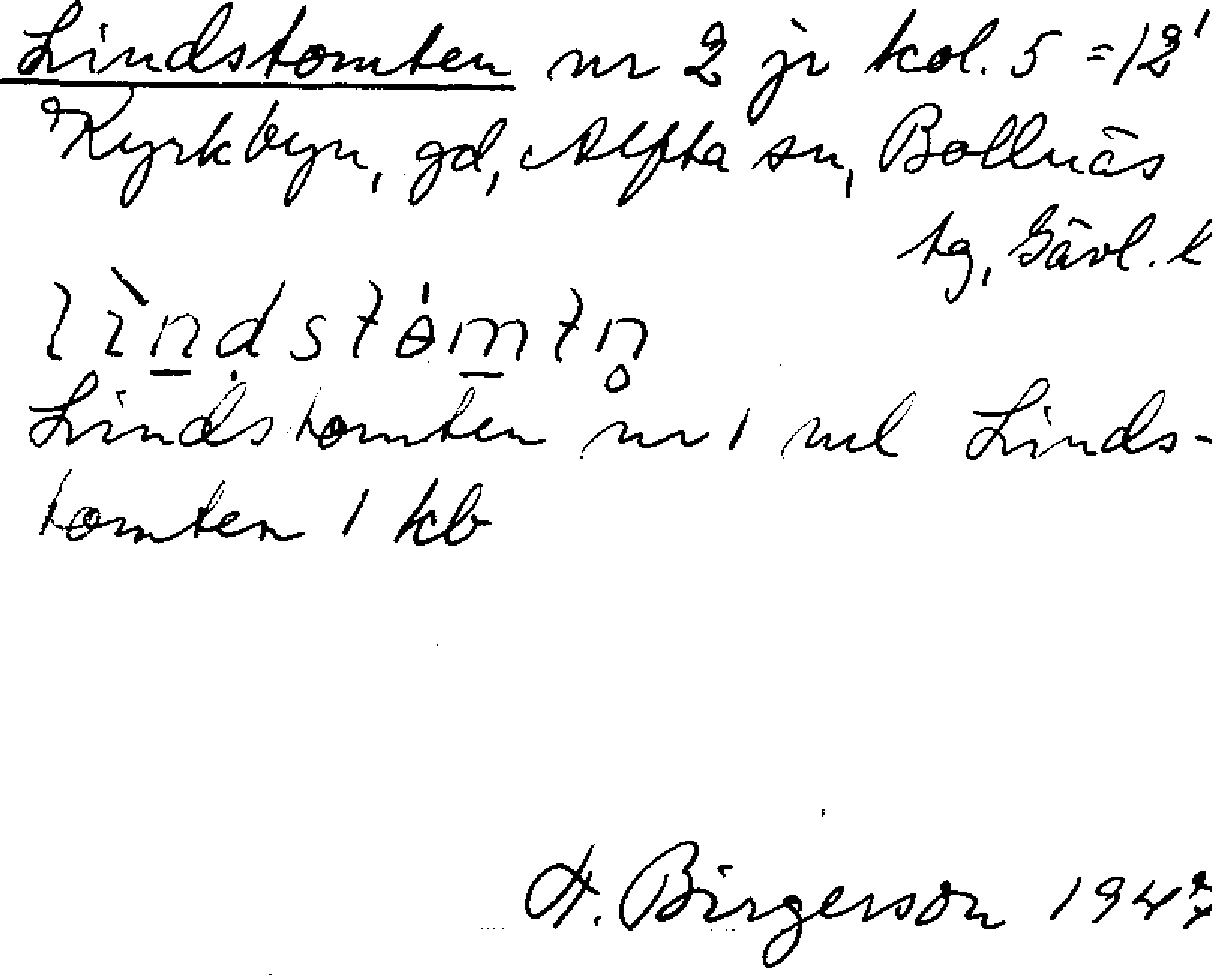 Lindstomten nr 2 jr kol. 5 = 12'
Kyrkbyn, gd, Alfta sn, Bollnäs
tg, Gävl. l
lìn̲ḍstɵ́m̲tn̥
Lindstomten nr 1 vid Linds-
tomten 1 kb
H. Birgerson 1947